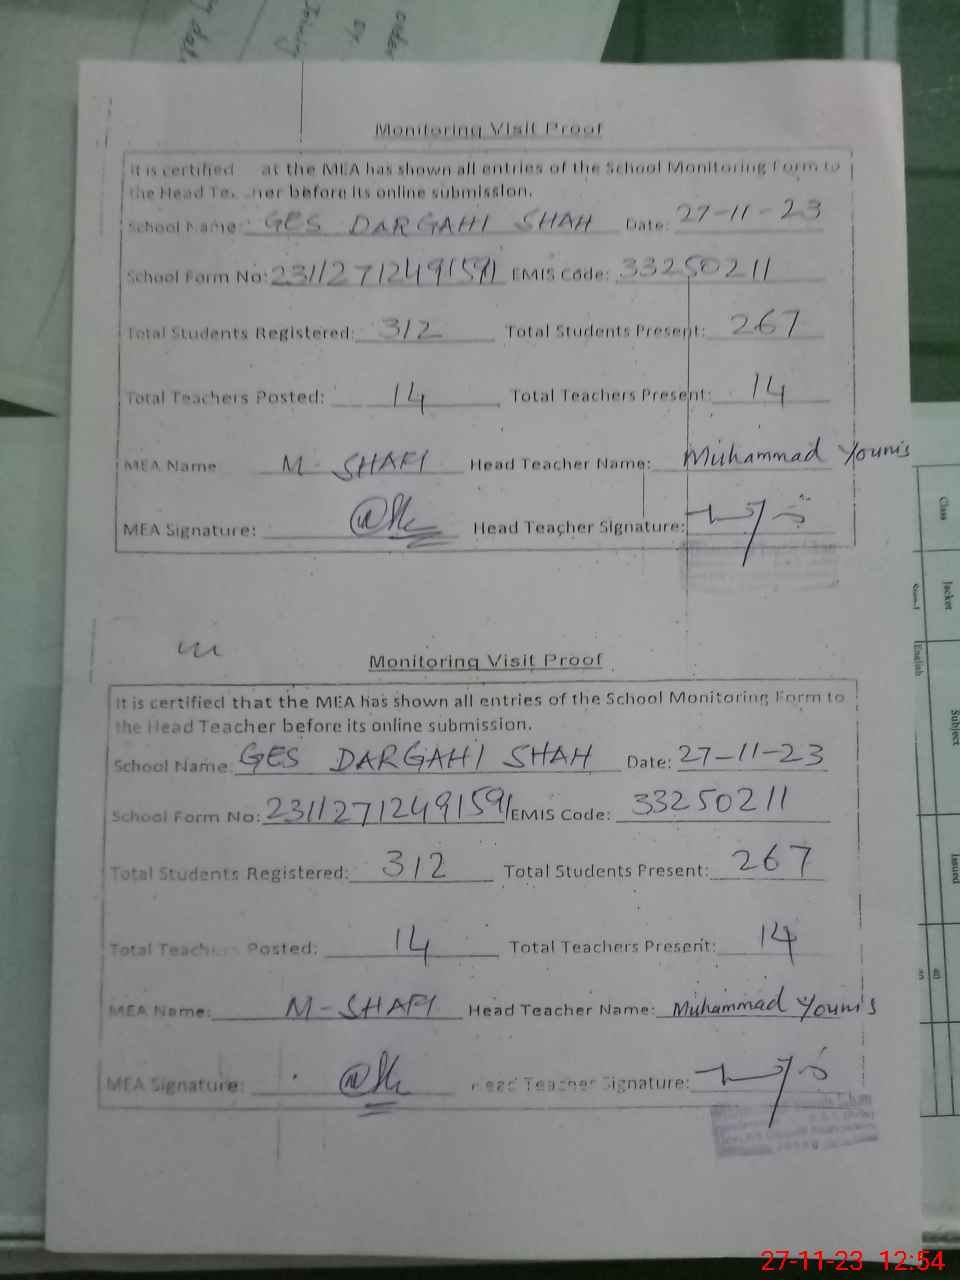 order
by
Monitoring Visit Proof
It is certified at the MEA has shown all entries of the School Monitoring Form to
the Head Te her before its online submission.
School Name: GES DARGAHI SHAH Date: 27-11-23
School Form No: 23112712491591 EMIS Code: 33250211
Total Students Registered: 312 Total Students Present: 267
Total Teachers Posted: 14 Total Teachers Present: 14
MEA Name M-SHAFI Head Teacher Name: Muhammad Younis
MEA Signature: Head Teacher Signature:
Monitoring Visit Proof
It is certified that the MEA has shown all entries of the School Monitoring Form to
the Head Teacher before its online submission.
School Name: GES DARGAHI SHAH Date: 27-11-23
School Form No: 23112712491591 EMIS Code: 33250211
Total Students Registered: 312 Total Students Present: 267
Total Teachers Posted: 14 Total Teachers Present: 14
MEA Name: M-SHAFI Head Teacher Name: Muhammad Younis
MEA Signature: Head Teacher Signature:
Class
Jacket
English
Subject
Issued
40
27-11-23 12:54